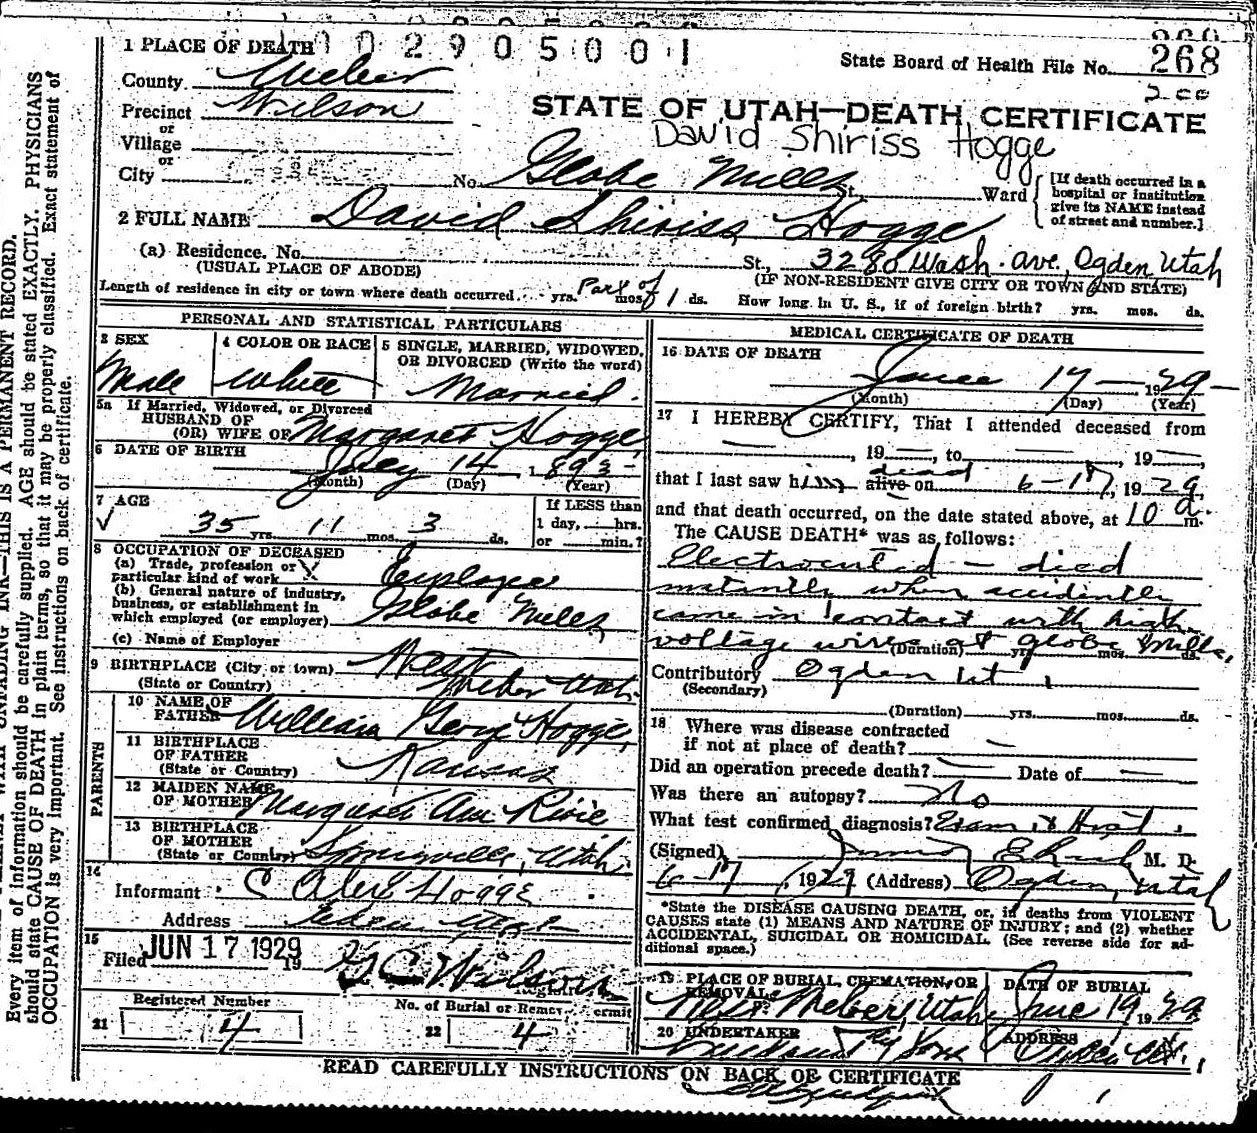 1 PLACE OF DEATH 1002905001
State Board of Health File No. 268
200
County Weber
Precinct Wilson
or
Village
or
City
STATE OF UTAH—DEATH CERTIFICATE
David Shiriss Hogge
No. Globe Mills St. Ward
[If death occurred in a hospital or institution give its NAME instead of street and number.]
2 FULL NAME David Shiriss Hogge
(a) Residence. No. St., 3280 Wash. ave., Ogden Utah
(USUAL PLACE OF ABODE) (IF NON-RESIDENT GIVE CITY OR TOWN AND STATE)
Length of residence in city or town where death occurred. yrs. Part of mos. 1 ds. How long in U. S., if of foreign birth? yrs. mos. ds.
PERSONAL AND STATISTICAL PARTICULARS
3 SEX 4 COLOR OR RACE 5 SINGLE, MARRIED, WIDOWED, OR DIVORCED (Write the word)
Male White Married.
5a If Married, Widowed, or Divorced
HUSBAND OF
(OR) WIFE OF Margaret Hogge
6 DATE OF BIRTH
July 14, 1893-
(Month) (Day) (Year)
7 AGE If LESS than
35 yrs. 11 mos. 3 ds. 1 day, hrs.
or min.?
8 OCCUPATION OF DECEASED
(a) Trade, profession or
particular kind of work Employee
(b) General nature of industry,
business, or establishment in
which employed (or employer) Globe Mills
(c) Name of Employer
9 BIRTHPLACE (City or town) West
(State or Country) Weber Utah
PARENTS
10 NAME OF
FATHER William George Hogge
11 BIRTHPLACE
OF FATHER
(State or Country) Kansas
12 MAIDEN NAME
OF MOTHER Margaret Ann
13 BIRTHPLACE
OF MOTHER
(State or Country) Springville, Utah.
14
Informant Hogge
Address
15
Filed JUN 17 1929 19 Wilson
Registered Number No. of Burial or Removal Permit
21 4 22 4
MEDICAL CERTIFICATE OF DEATH
16 DATE OF DEATH
June 17— 1929—
(Month) (Day) (Year)
17 I HEREBY CERTIFY, That I attended deceased from
, 19 , to , 19
that I last saw him alive dead on 6-17, 1929,
and that death occurred, on the date stated above, at 10 a. m.
The CAUSE DEATH* was as follows:
Electrocuted — died
instantly when accidently
came in contact with high
voltage wires at Globe Mills,
(Duration) yrs. mos. ds.
Contributory Ogden Ut.
(Secondary)
(Duration) yrs. mos. ds.
18 Where was disease contracted
if not at place of death? —
Did an operation precede death? — Date of —
Was there an autopsy? No
What test confirmed diagnosis? Exam. & Hist.
(Signed) M. D.
6-17, 1929 (Address) Ogden, Utah
*State the DISEASE CAUSING DEATH, or, in deaths from VIOLENT
CAUSES state (1) MEANS AND NATURE OF INJURY; and (2) whether
ACCIDENTAL, SUICIDAL OR HOMICIDAL. (See reverse side for ad-
ditional space.)
19 PLACE OF BURIAL, CREMATION, OR REMOVAL DATE OF BURIAL
West Weber, Utah June 19 1929
20 UNDERTAKER ADDRESS
Ogden Ut.
READ CAREFULLY INSTRUCTIONS ON BACK OF CERTIFICATE
THIS IS A PERMANENT RECORD.
Every item of information should be carefully supplied. AGE should be stated EXACTLY. PHYSICIANS
should state CAUSE OF DEATH in plain terms, so that it may be properly classified. Exact statement of
OCCUPATION is very important. See instructions on back of certificate.